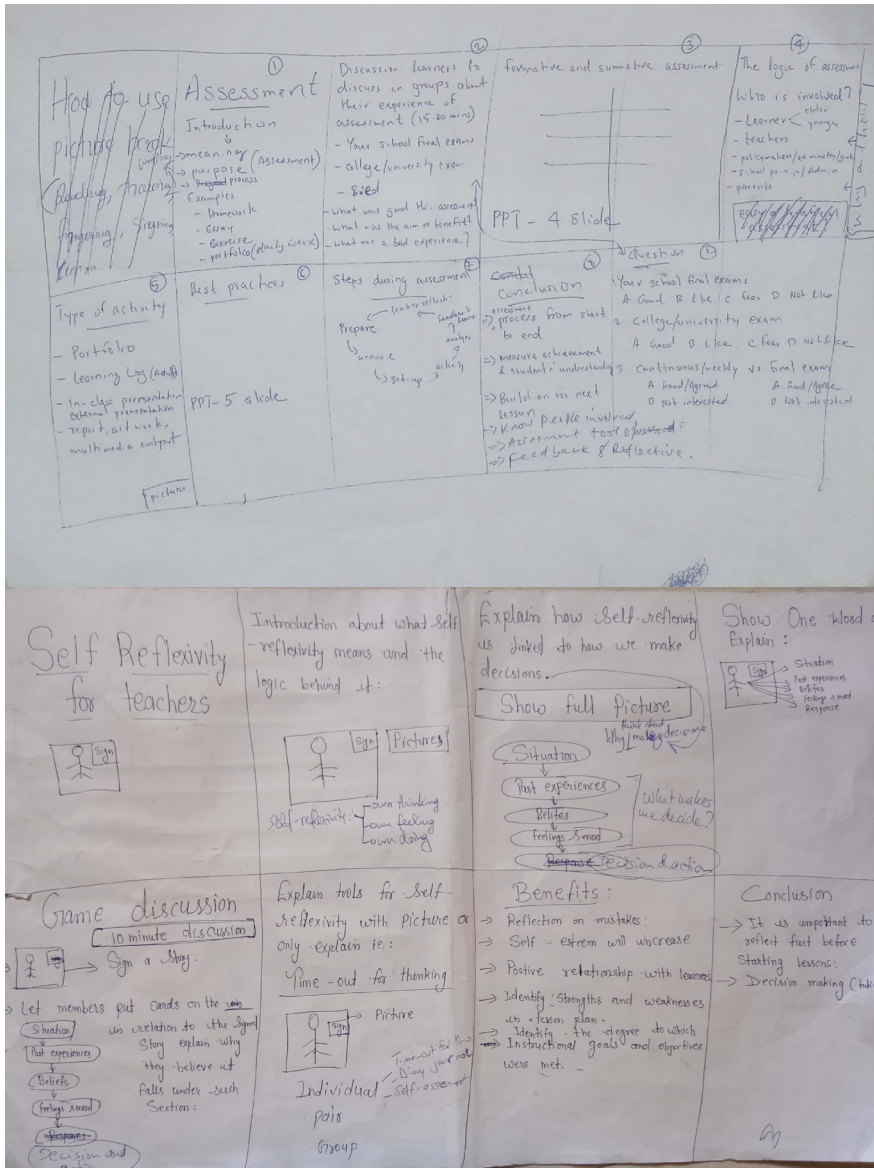 How to use
picture book
①
Assessment
Introduction
→ meaning
→ purpose (Assessment)
process
Examples
- Homework
- Essay
- Exercise
- portfolio (daily work)
②
Discussion learners to
discuss in groups about
their experience of
assessment (15-20 mins)
- Your school final exams
- college/university exam
- what was good this assessment
- what was the aim or benefit?
- what was a bad experience?
③
formative and summative assessment
PPT - 4 slide
④
The logic of assessment
Who is involved?
- Learner
older
younger
- teachers
- parents
⑤
Type of activity
- Portfolio
- Learning Log (Adult)
- in-class presentation
external presentation
- report, art work,
multimedia output
picture
⑥
Best practices
PPT - 5 slide
⑦
Steps during assessment
Prepare
set-up
activity
analyse
feedback
⑧
Conclusion
⇒ assessment process from start
to end
⇒ measure achievement
& students' understanding
⇒ Build on for next
lesson
⇒ Know People involved
⇒ Assessment tool
⇒ Feedback & Reflective.
Question
Your school final exams
A Good B Like C fear D Not Like
2 College/university exam
A Good B Like C fear D Not Like
3 Continuous/weekly vs final exam
A Good/Agreed A Good/Agree
D Not interested D Not interested
Self Reflexivity
for teachers
Sign
Introduction about what Self
-reflexivity means and the
logic behind it:
Sign
Pictures
Self-reflexivity:
own thinking
own feeling
own doing
Explain how Self-reflexivity
is linked to how we make
decisions.
Show full Picture
think about
Why making decisions
Situation
Past experiences
Belifes
feelings & mod
Response Decision & action
What makes
me decide?
Show One Word
Explain:
Sign
Situation
Past experiences
Belifes
feelings & mod
Response
Game discussion
10 minute discussion
Sign a Story.
Let members put cards on the
in relation to the Signed
Story explain why
they believe it
falls under such
Section:
Situation
Past experiences
Beliefs
feelings & mod
Response
Decision and
Explain tools for Self-
reflexivity with Picture or
only explain ie.:
Time-out for thinking
Sign
Picture
Individual
Self-assesment
pair
Group
Benefits:
→ Reflection on mistakes:
→ Self-esteem will increase
→ Postive relationship with learners
→ Identify Strengths and weaknesses
in lesson plan.
→ Identify the degree to which
→ Instructional goals and objectives
were met.
Conclusion
→ It is important to
reflect first before
Starting lessons:
→ Decision making